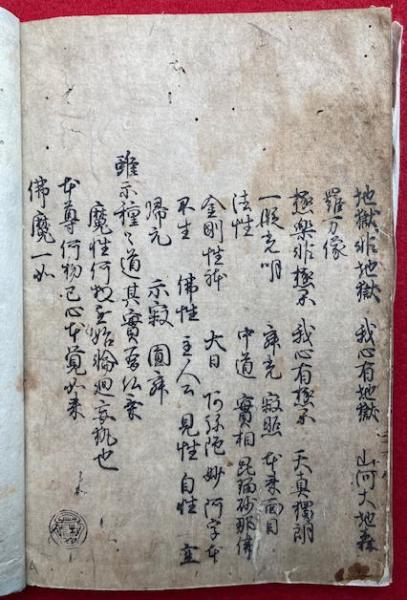 地獄非地獄 我心有地獄 山河大地森
羅万像
極楽非極楽 我心有極楽 天真獨朗
一段光明 寂光 寂照 本来面目
法性 中道 實相 毘 那佛
金剛性躰 大日 阿弥陀 妙 阿字本
不生 佛性 主人公 見性 自性 直
歸元 示寂 圓寂
雖示種々道其實為仏乗
魔性何物無始輪廻妄執也
本尊何物己心本覚如来
佛魔一如